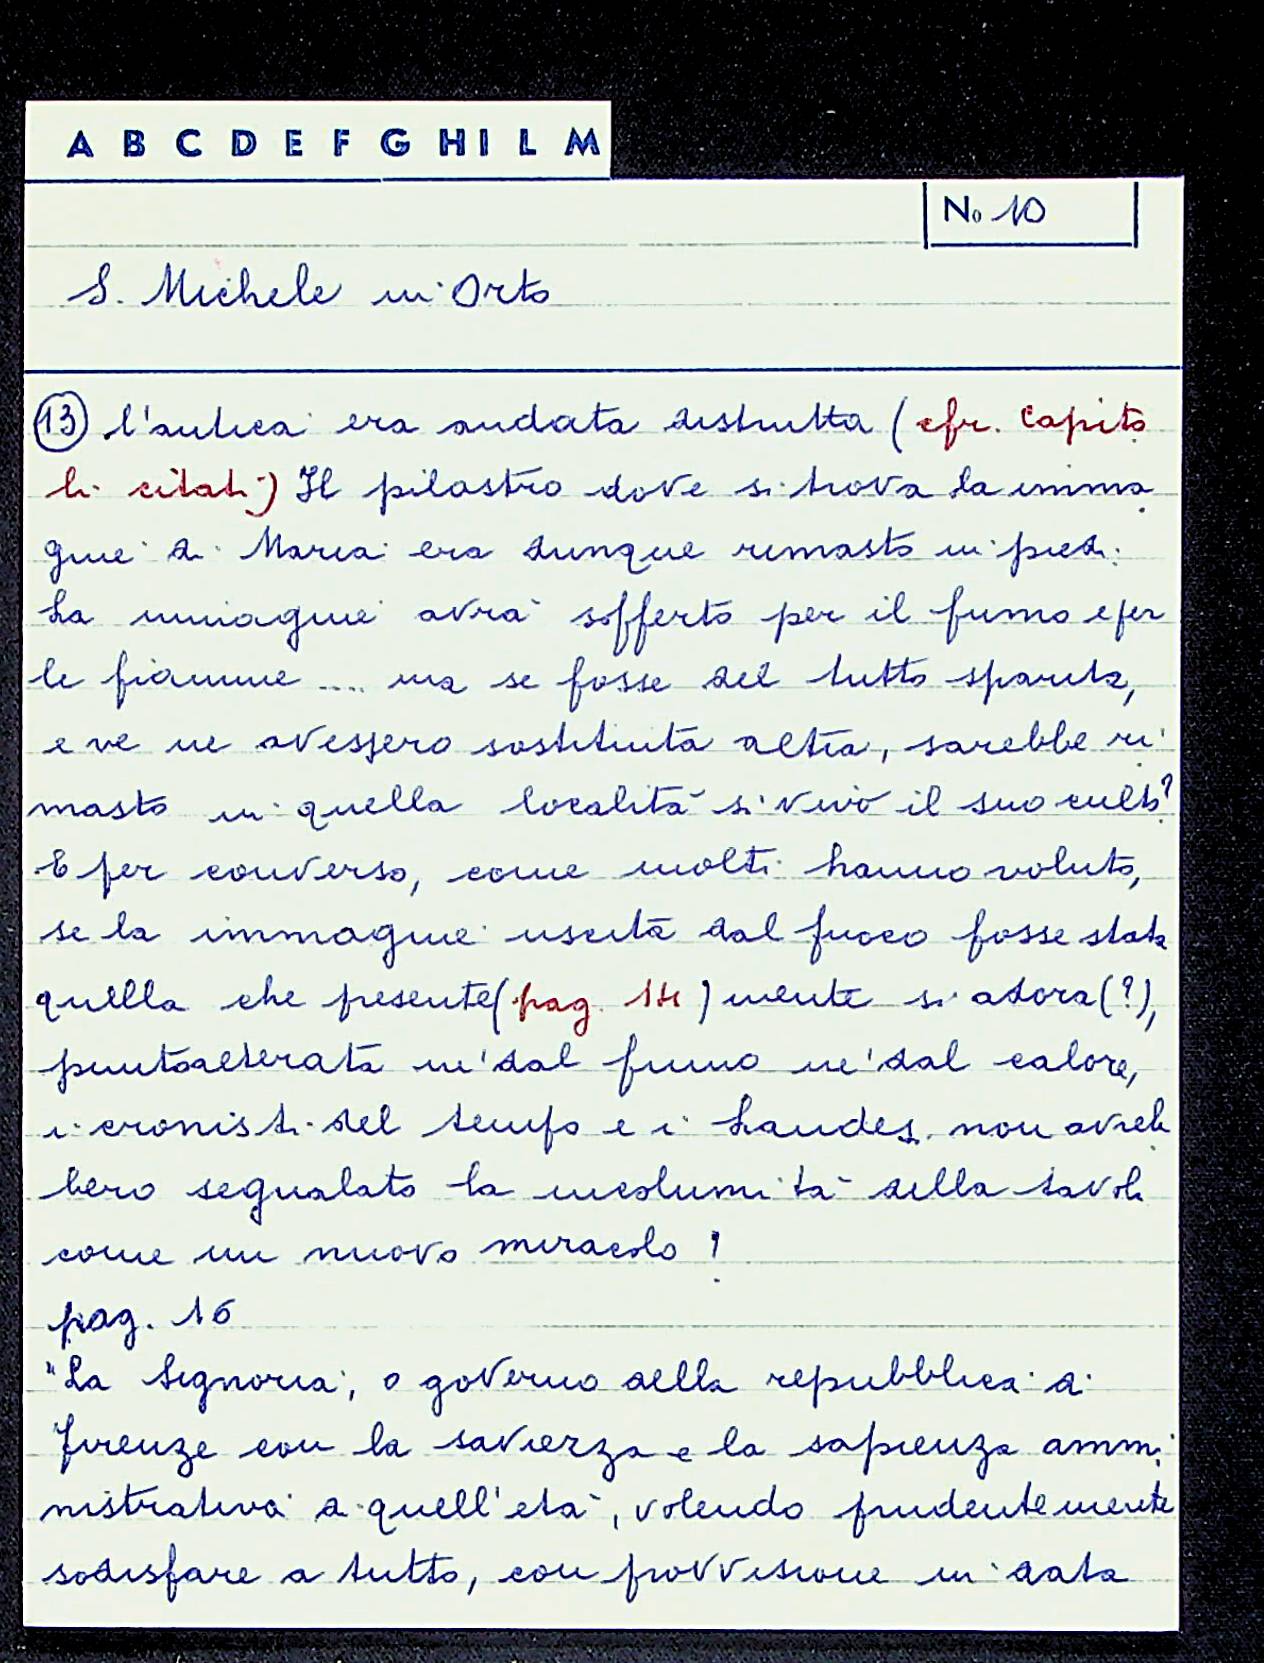 A B C D E F G H I L M
No 10
S. Michele in Orto
13 l'antica era andata distrutta (cfr. capito
li citati) Il pilastro dove si trova la imma
gine di Maria era dunque rimasto in piedi.
La immagine avrà sofferto per il fumo e per
le fiamme .... ma se fosse del tutto sparita,
e ve ne avessero sostituita altra, sarebbe ri
masto in quella località sì vivo il suo culto?
E per converso, come molti hanno voluto,
se la immagine uscita dal fuoco fosse stata
quella che presente(pag. 14)mente si adora(?),
punto alterata nè dal fumo nè dal calore,
i cronisti del tempo e i laudesi non avreb
bero segnalato la incolumità della tavola
come un nuovo miracolo!
pag. 16
"La Signoria, o governo della repubblica di
Firenze con la saviezza e la sapienza ammi
nistrativa di quell'età, volendo prudentemente
sodisfare a tutto, con provvisione in data